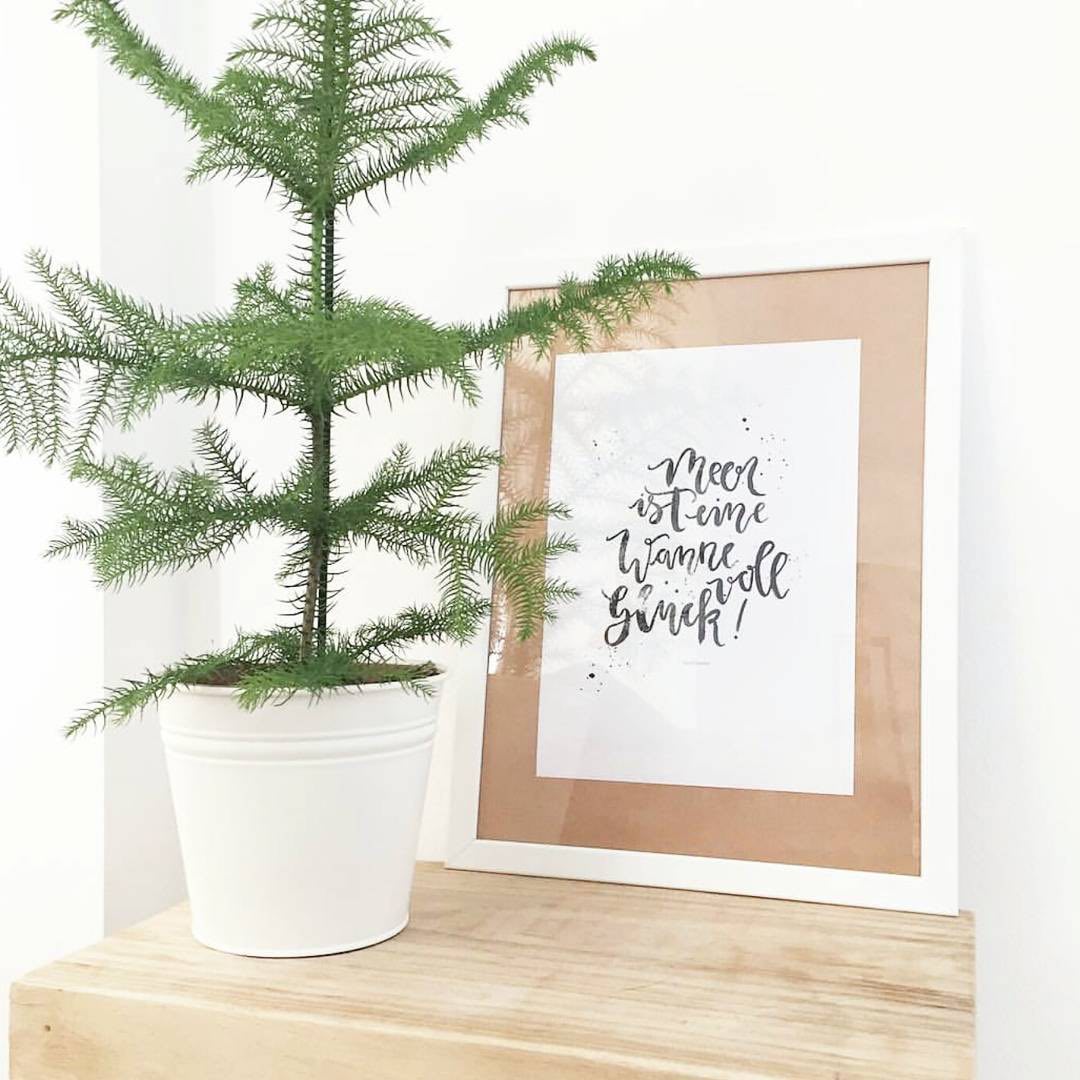 Meer
ist eine
Wanne
voll
Glück!